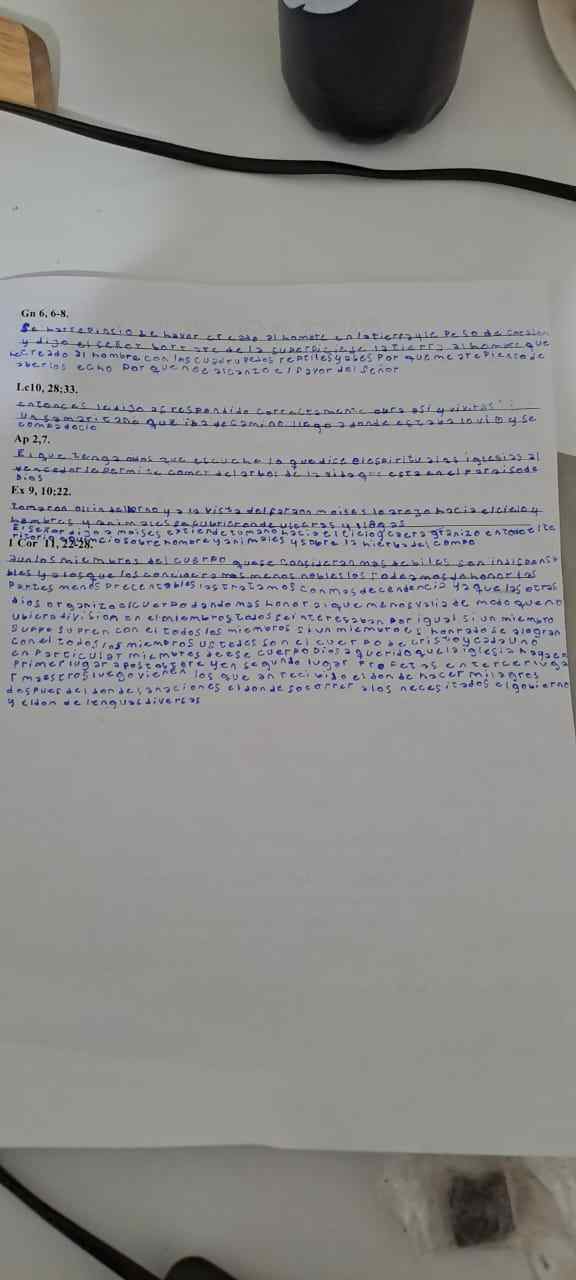 Gn 6, 6-8.
Se harrepincio de haver creado al hombre en la tierra y le peso de corazon
y dijo el señor borrare de la superficie de la tierra al hombre que
he creado al hombre con los cuadrupedos reptiles y abes por que me arepiento de
aberlos echo por que noe alcanzo el favor del señor
Lc10, 28;33.
entonces le dijo as respondido correctamente obra asi y viviras
un samaritano que iba de camino llego a donde estaba lo vio y se
compadecio
Ap 2,7.
El que tenga oidos que escuche lo que dice el espiritu a las iglesias al
vencedor le permite comer del arbol de la vida que esta en el paraiso de
Dios
Ex 9, 10:22.
tomaron ollin del orno y a la vista del faraon moises lo arojo hacia el cielo y
hombres y animales se cubrieron de ulceras y llagas
El señor dijo a moises extiende tu mano hacia el cielo y caera granizo en todo el te
ritorio egipcio sobre hombre y animales y sobre la hierba del campo
1 Cor 11, 22-28.
aun los miembros del cuerpo que se consideran mas debiles son indispensa
bles y a los que los concideramos menos nobles los rodeamos de honor las
partes menos precentables las tratamos con mas decendencia ya que las otras
dios organizo el cuerpo dando mas honor al que menos valia de modo que no
ubiera division en el miembros todos se interesaban por igual si un miembro
suppe supren con el todos los miembros si un miembro es honrado se alegran
con el todos los miembros ustedes son el cuerpo de cristo y cada uno
en particular miembros de ese cuerpo Dios a querido que la iglesia haya en
Primer lugar apostoles y en segundo lugar profetas en tercer luga
r maestros luego vienen los que an recibido el don de hacer milagros
despues el don de sanaciones el don de socorrer a los necesitados el gobierno
y el don de lenguas diversas